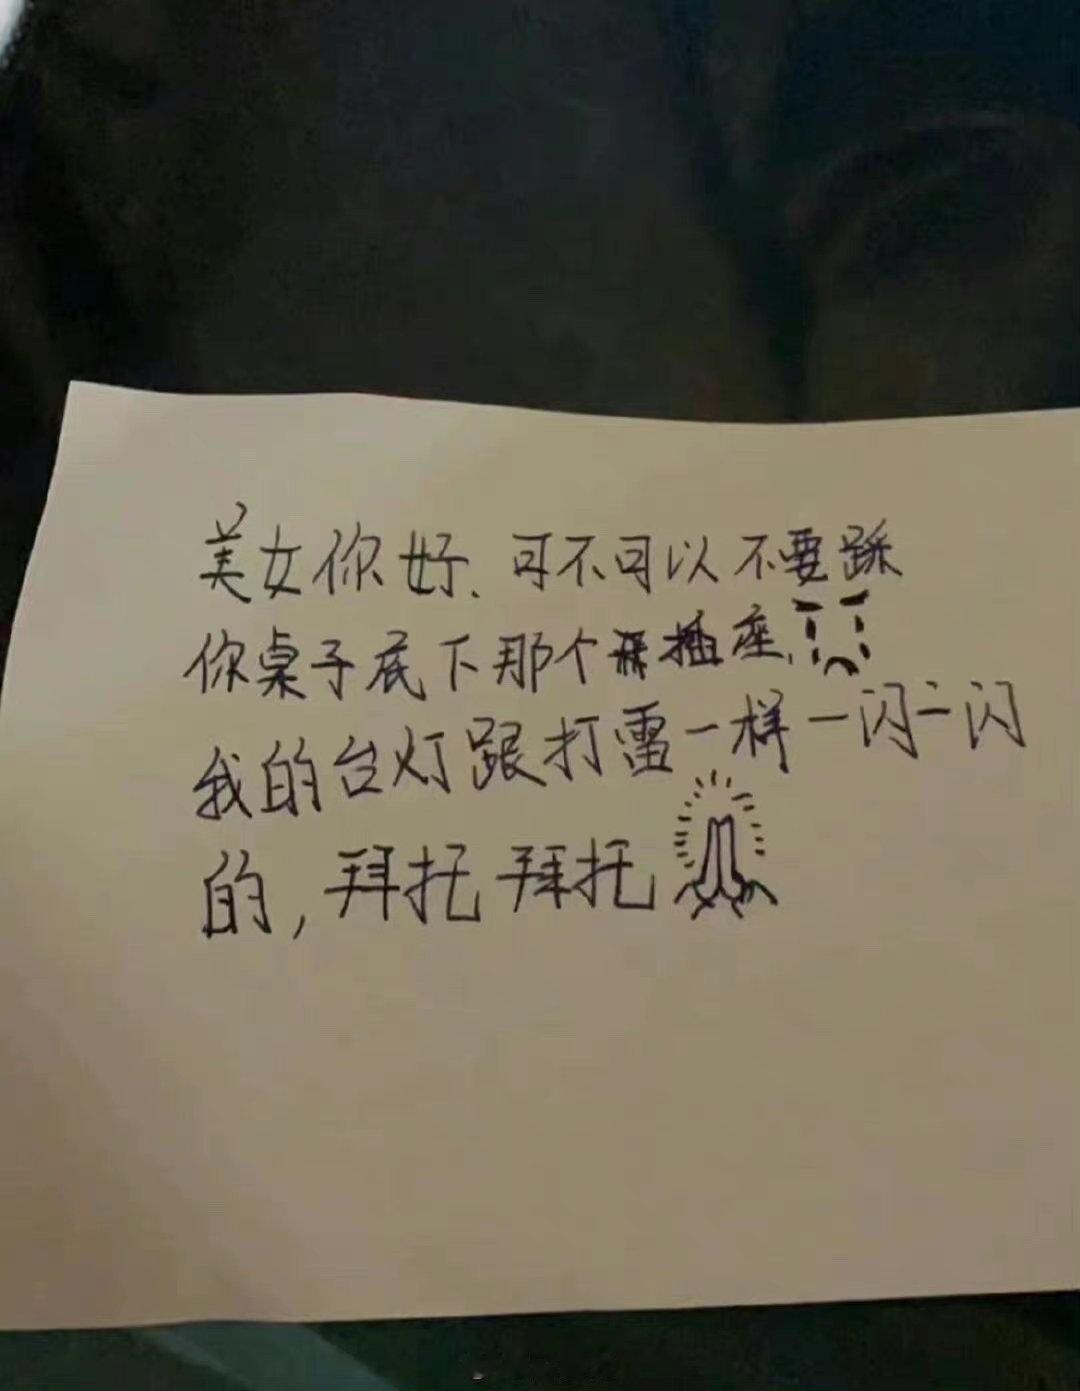 美女你好、可不可以不要踩
你桌子底下那个插座,
我的台灯跟打雷一样一闪一闪
的,拜托拜托